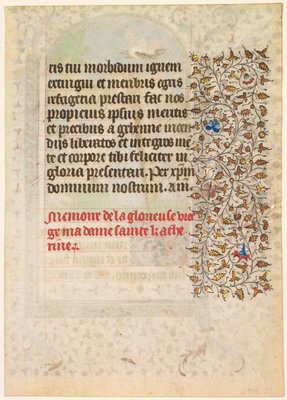 tis tui morbidum ignem
extingui et membris egris
refugeria prestari fac nos
propicius ipsius meritis
et precibus a gehenne incen
diis liberatos et integros me
te et corpore tibi feliciter in
gloria presentari. Per xp̄m
dominum nostrum.
Memoire de la glorieuse vier
ge ma dame sainte kathe
rine.